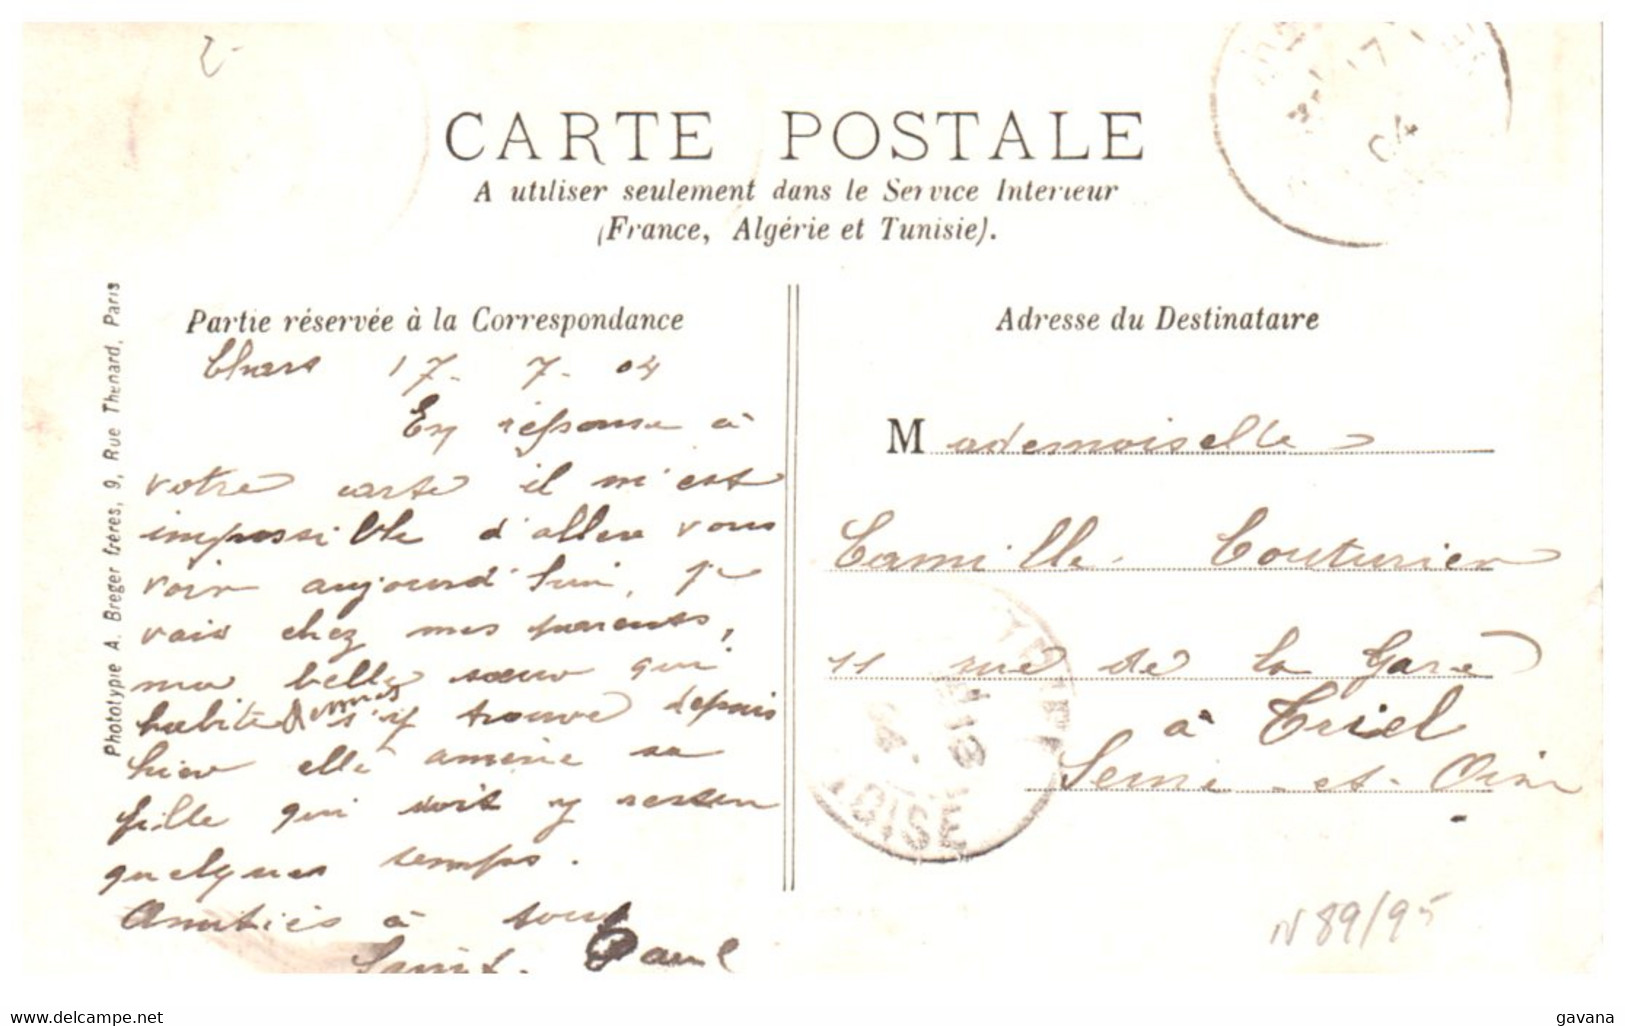 CARTE POSTALE
A utiliser seulement dans le Service Interieur
(France, Algérie et Tunisie).
Partie réservée à la Correspondance
17-7-04
En réponse à
votre carte il m'est
impossible d'aller vous
voir aujourd'hui, je
vais chez mes parents,
ma belle sœur qui
habite Reims s'y trouve depuis
hier elle amène sa
fille qui doit y rester
quelques temps.
Amitiés à tous
Paul
Phototypie A. Breger frères, 9, Rue Thenard, Paris
Adresse du Destinataire
Mademoiselle
Camille Couturier
11 rue de la Gare
à Triel
Seine-et-Oise
OISE
17
04
N 89/95
delcampe.net
gavana